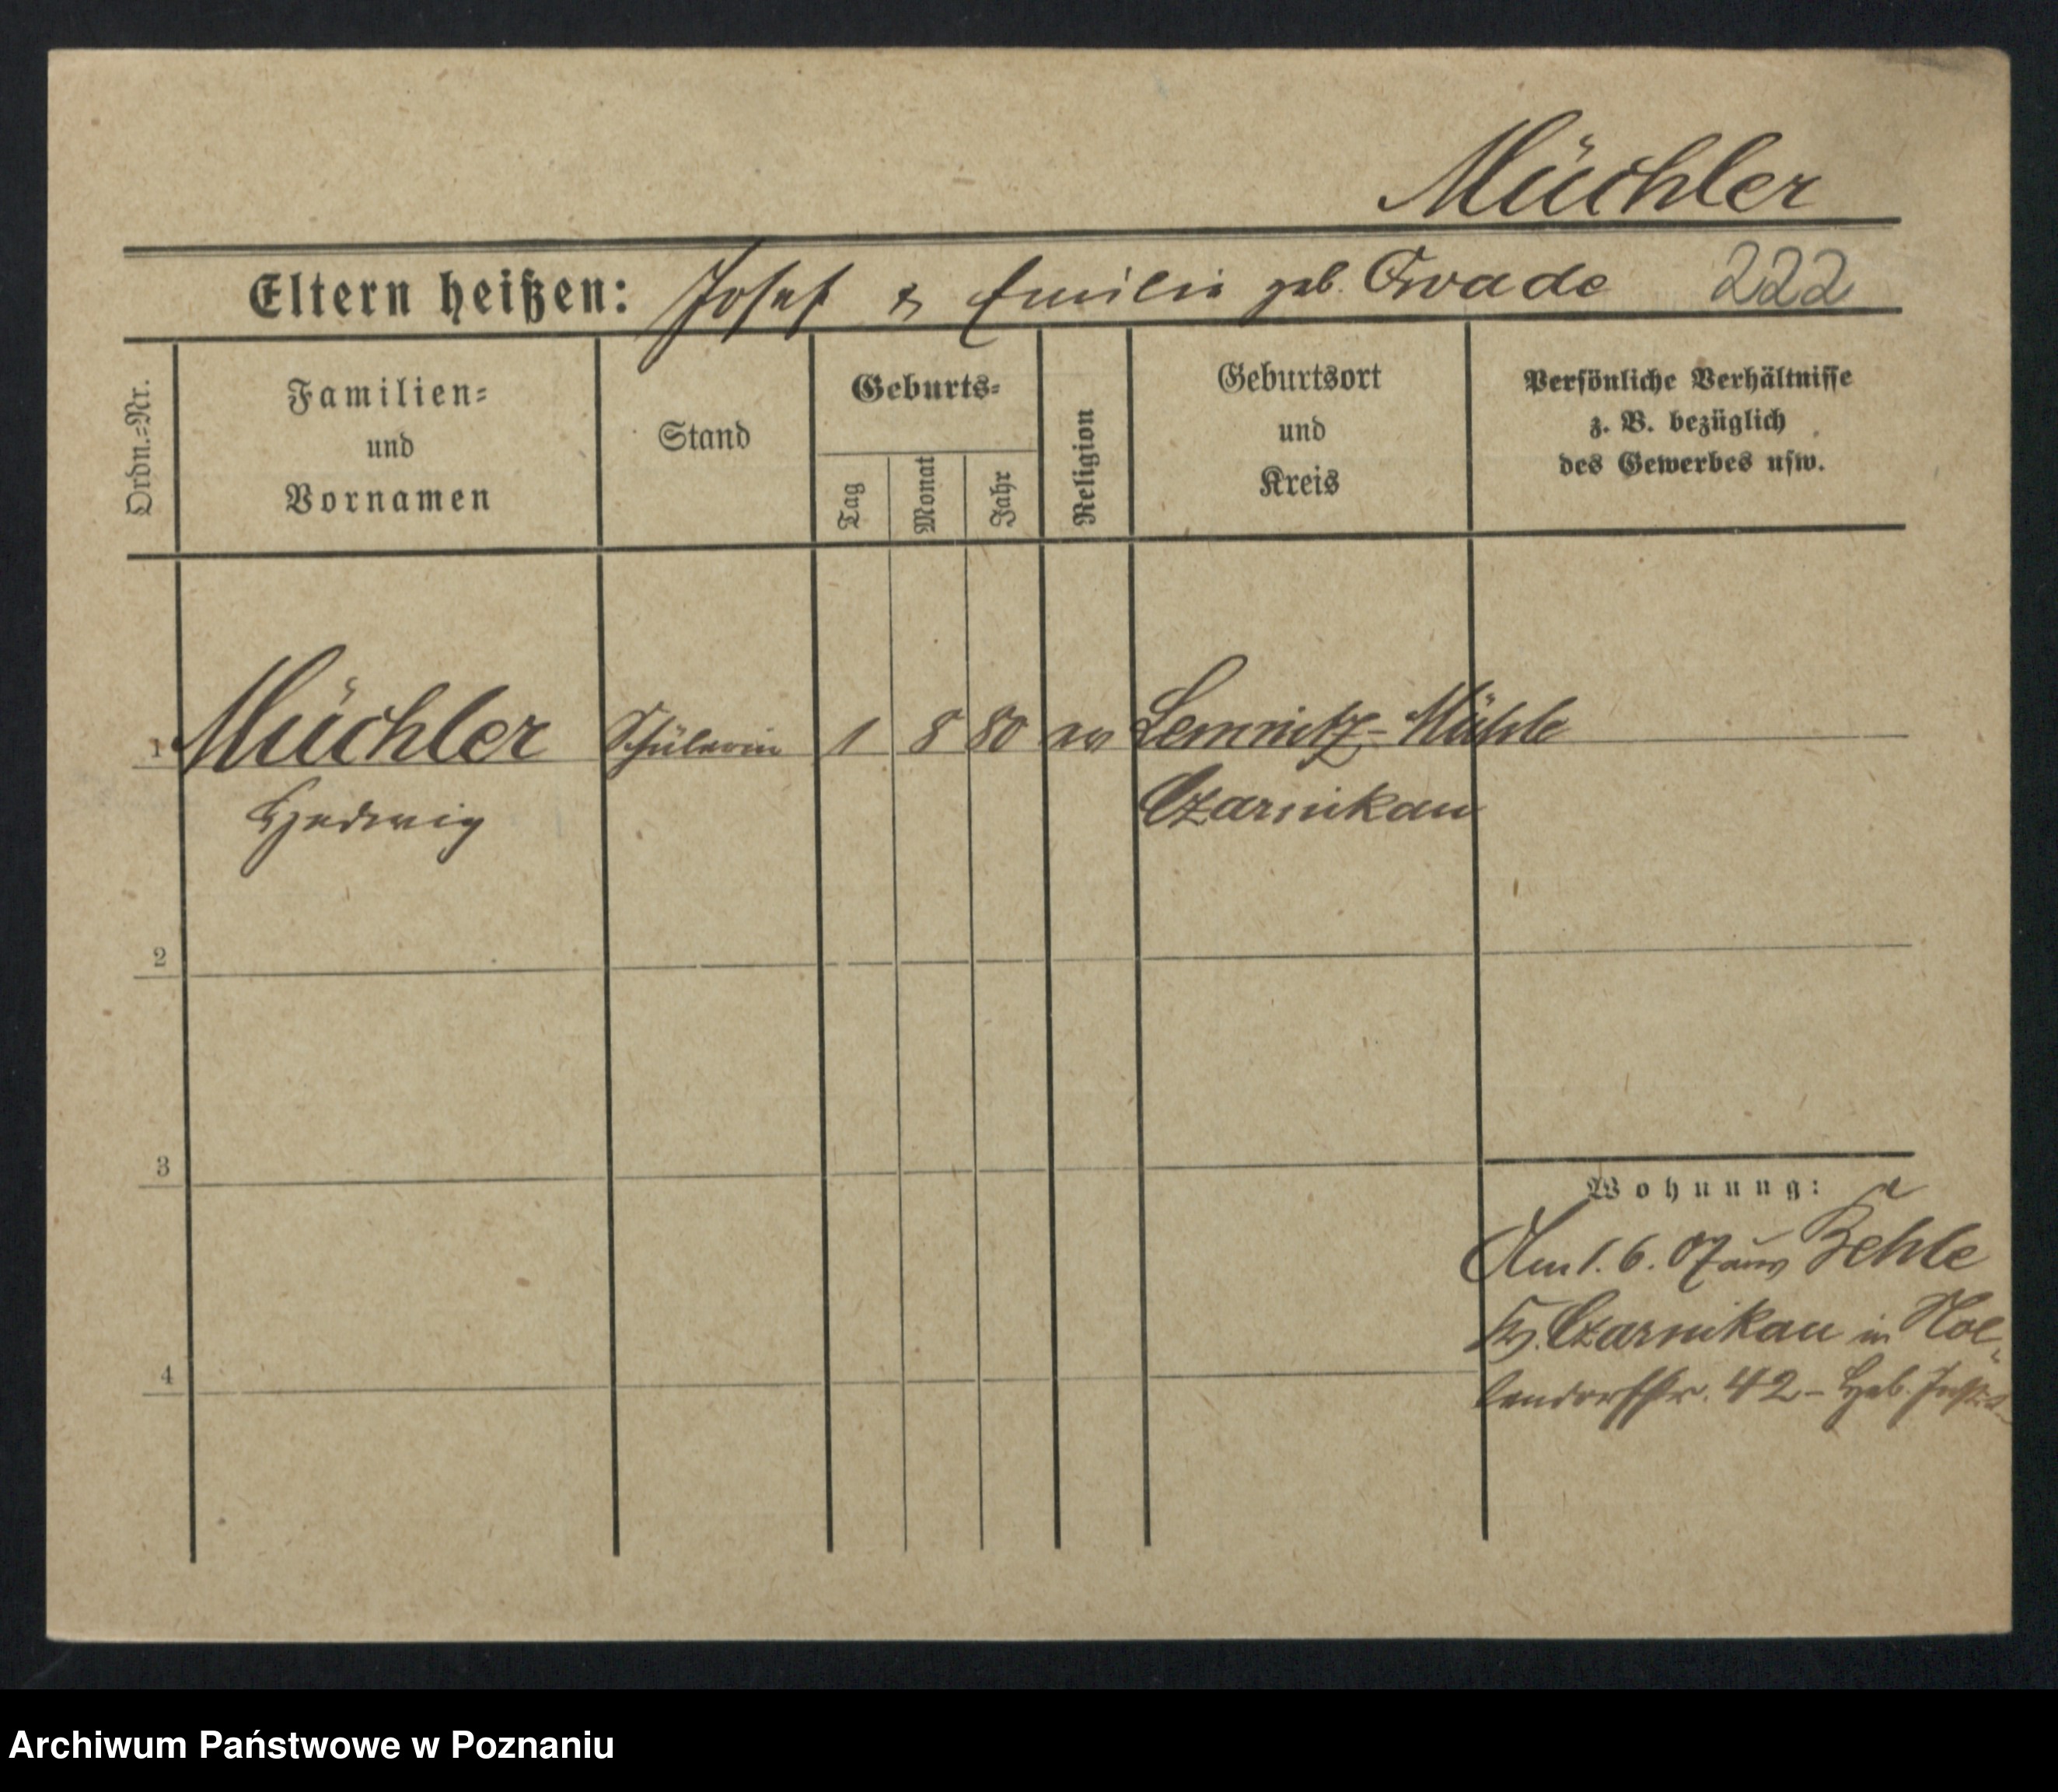 Müchler
Eltern heißen: Josef & Emilie geb. Qvade 222
Ordn.=Nr.
Familien=
und
Vornamen
Stand
Geburts=
Tag
Monat
Jahr
Religion
Geburtsort
und
Kreis
Persönliche Verhältnisse
z. B. bezüglich
des Gewerbes usw.
1 Müchler Schülerin 1 8 80 ev Lemnitz-Mühle
Hedwig Czarnikau
2
3
Wohnung:
Am 1. 6. 07 aus Behle
Kr. Czarnikau in Nol-
lendorfstr. 42 - Heb.
4
Archiwum Państwowe w Poznaniu